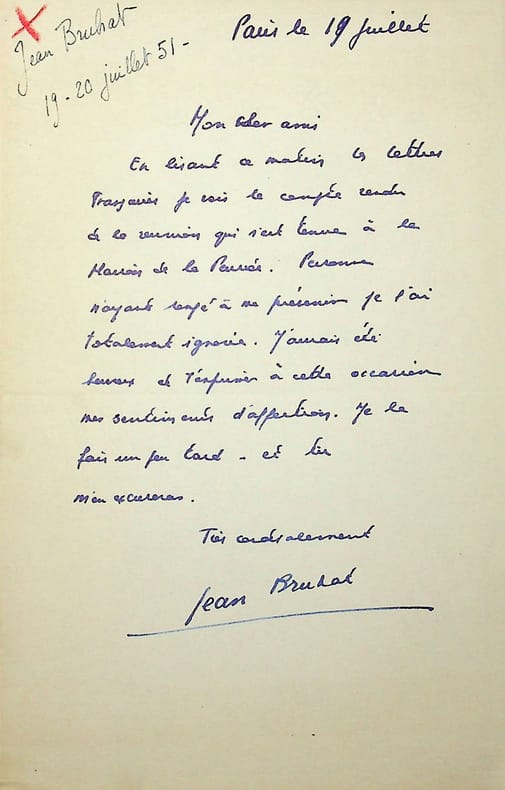 Jean Bruhat
19-20 juillet 51-
Paris le 19 juillet
Mon cher ami
En lisant ce matin les lettres
françaises je vois le compte rendu
de la reunion qui s'est tenue à la
Maison de la Pensée. Personne
n'ayant songé à me prévenir je l'ai
totalement ignorée. J'aurais été
heureux de t'exprimer à cette occasion
mes sentiments d'affection. Je le
fais un peu tard - et tu
m'en excuseras.
Très cordialement
Jean Bruhat